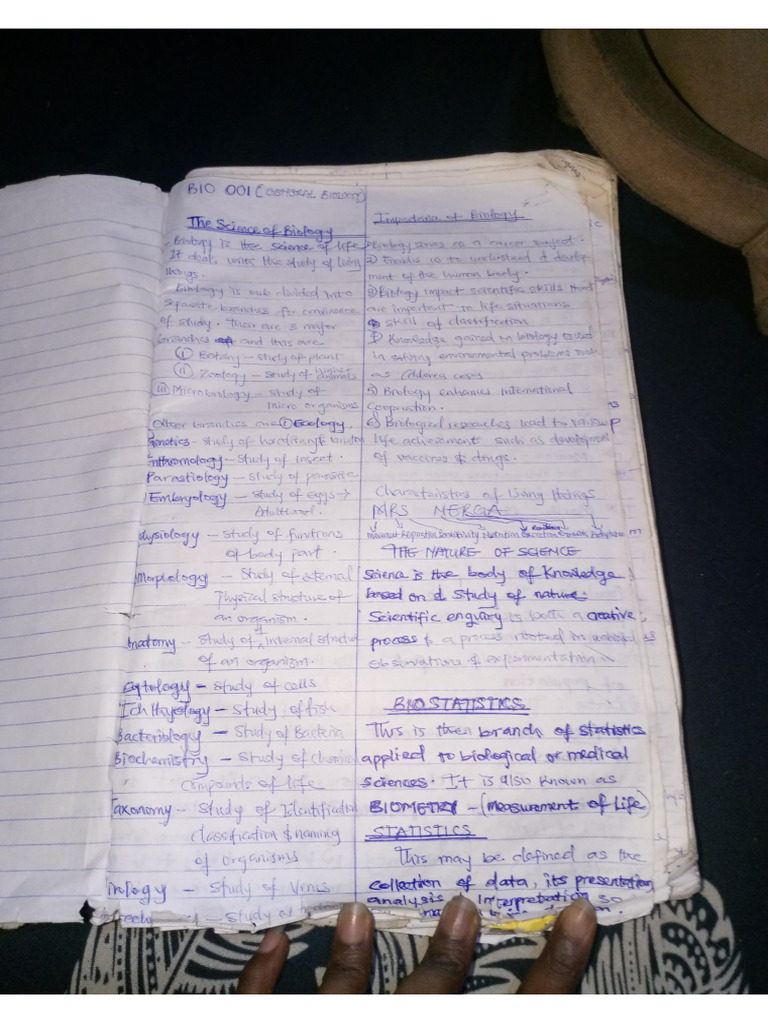 BIO 001 (GENERAL BIOLOGY)
The Science of Biology
- Biology is the science of life
It deals with the study of living
things.
Biology is sub-divided into
separate branches for convinence
of study. There are 3 major
branches and this are
(i) Botany - study of plant
(ii) Zoology - study of higher
animals
(iii) Microbiology - study of
micro organisms
Other branches are (i) Ecology.
Genetics - study of hereditary & variation
Enthromology - study of insect.
Parastiology - study of parasite
Embryology - study of eggs →
Adulthood.
Study of functions
of body part.
Morphology - Study of external
Physical structure of
an organism.
Anatomy - Study of internal structure
of an organism.
Cytology - study of cells
Ichthyology - study of fish
Bacteriology - Study of Bacteria
Biochemistry - Study of chemical
compounts of life
Taxonomy - Study of Identification
classification & naming
of organisms
- Study of Virus
- Study of
Importance of Biology
1) Biology serves as a career subject.
2) Enables us to understand d develop
ment of the human body.
3) Biology impact scientific skills that
are important to life situations
skill of classification
4) Knowledge gained in biology is used
in solving environmental problems such
as
5) Biology enhances international
Cooperation.
6) Biological researches lead to various
life achievement such as development
of vaccines & drugs.
Characteristics of Living things
MRS NERGA
Movement Respiration Sensitivity Nutrition Excretion
THE NATURE OF SCIENCE
Science is the body of knowledge
based on d study of nature.
Scientific enquiry is both a creative
process & a process rooted in
observations & experimentation
BIOSTATISTICS
This is then branch of statistics
applied to biological or medical
sciences. It is also known as
BIOMETRY - (measurement of life)
STATISTICS
This may be defined as the
collection of data, its presentation
analysis & interpretation so